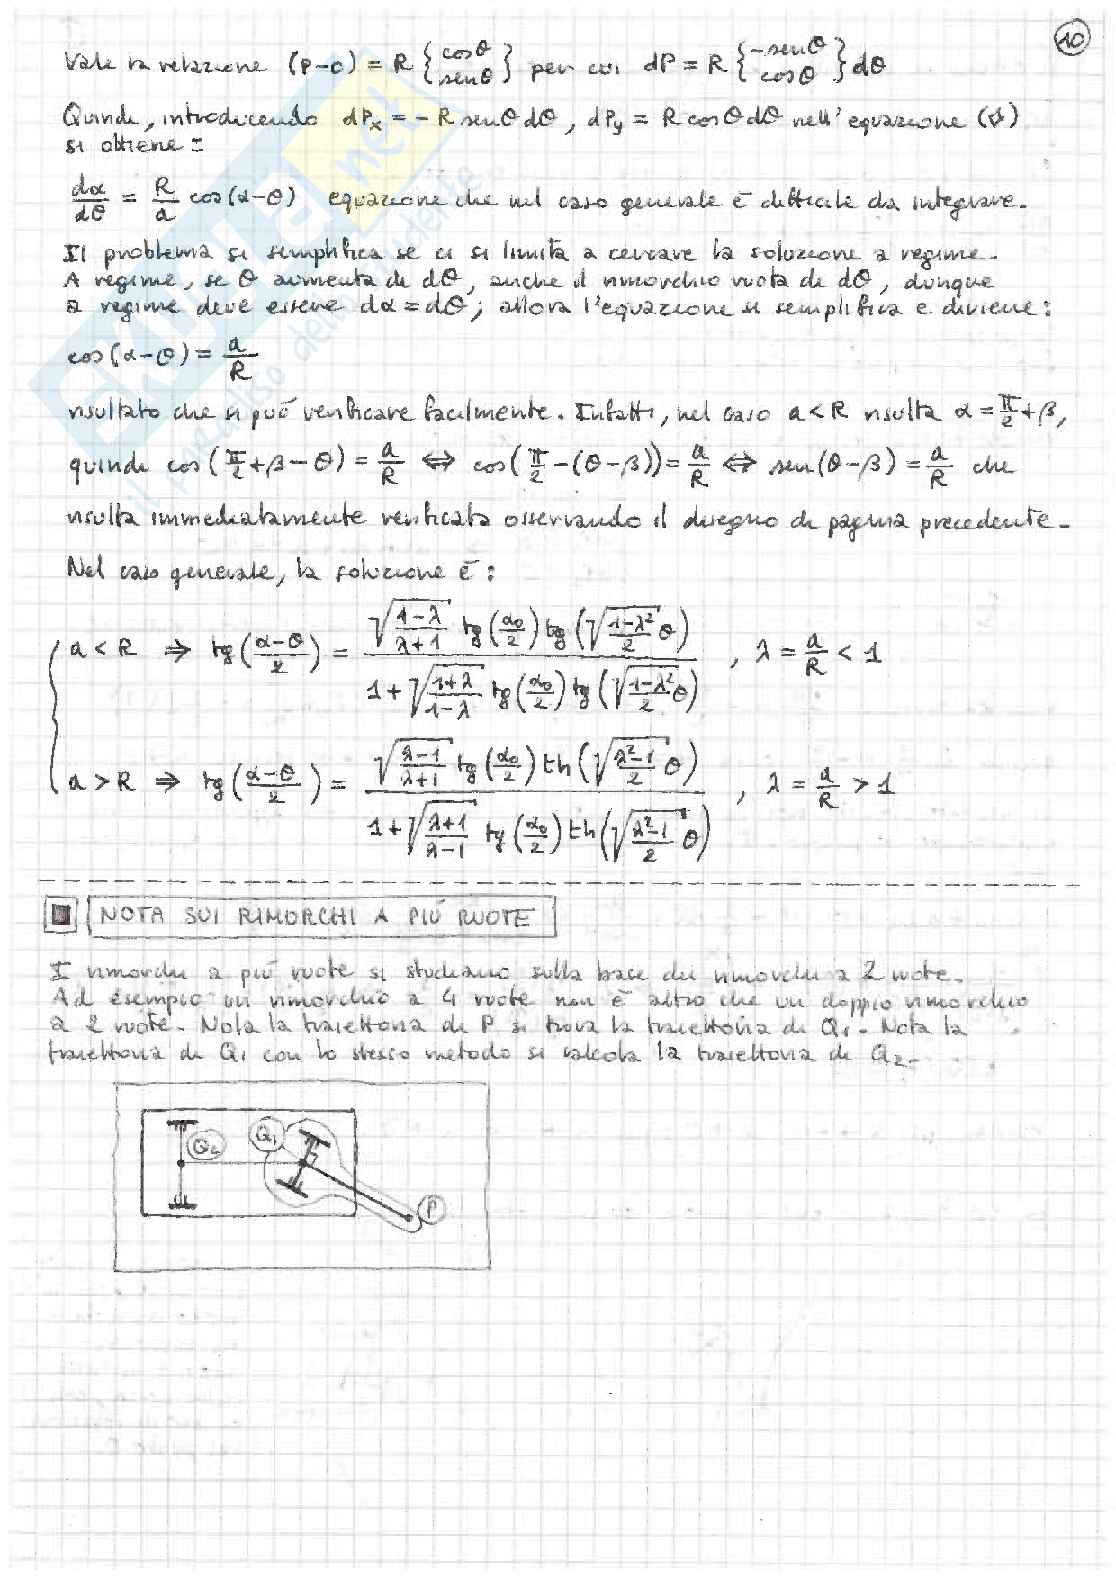 10
Vale la relazione (P-O) = R {cosθ senθ} per cui dP = R {-senθ cosθ} dθ
Quindi, introducendo dPx = - R senθ dθ, dPy = R cosθ dθ nell'equazione
si ottiene:
dα/dθ = R/a cos(α-θ) equazione che nel caso generale è difficile da integrare.
Il problema si semplifica se ci si limita a cercare la soluzione a regime.
A regime, se θ aumenta di dθ, anche il rimorchio ruota di dθ, dunque
a regime deve essere dα = dθ; allora l'equazione si semplifica e diviene:
cos(α-θ) = a/R
risultato che si può verificare facilmente. Infatti, nel caso a < R risulta α = π/2 + β,
quindi cos(π/2 + β - θ) = a/R ⇔ cos(π/2 - (θ-β)) = a/R ⇔ sen(θ-β) = a/R che
risulta immediatamente verificata osservando il disegno di pagina precedente.
Nel caso generale, la soluzione è:
a < R ⇒ tg((α-θ)/2) = [√((1-λ)/(λ+1)) tg(α₀/2) tg(√((1-λ²)/2) θ)] / [1 + √((1+λ)/(1-λ)) tg(α₀/2) tg(√((1-λ²)/2) θ)] , λ = a/R < 1
a > R ⇒ tg((α-θ)/2) = [√((λ-1)/(λ+1)) tg(α₀/2) th(√((λ²-1)/2) θ)] / [1 + √((λ+1)/(λ-1)) tg(α₀/2) th(√((λ²-1)/2) θ)] , λ = a/R > 1
NOTA SUI RIMORCHI A PIÚ RUOTE
I rimorchi a più ruote si studiano sulla base dei rimorchi a 2 ruote.
Ad esempio un rimorchio a 4 ruote non è altro che un doppio rimorchio
a 2 ruote. Nota la traiettoria di P si trova la traiettoria di Q₁. Nota la
traiettoria di Q₁ con lo stesso metodo si calcola la traiettoria di Q₂.
Q₂
Q₁
P